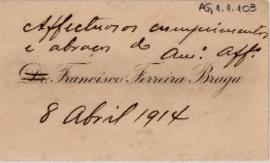 AG, 1.1.103
Affectuosos cumprimentos
e abraços do Am.º Aff.º
Dr. Francisco Ferreira Braga
8 Abril 1914